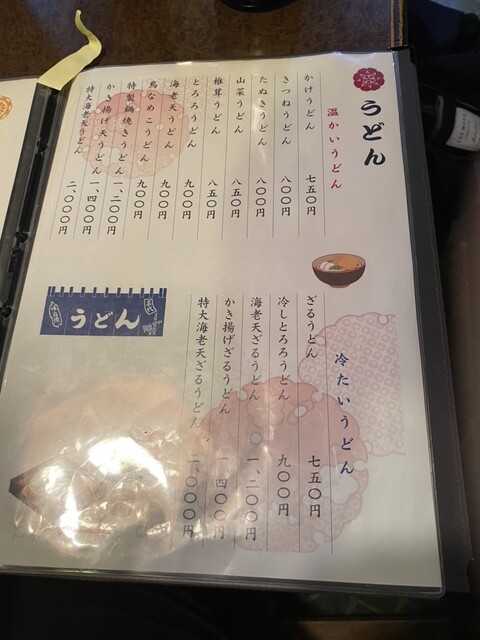 うどん
温かいうどん
かけうどん 七五〇円
きつねうどん 八〇〇円
たぬきうどん 八〇〇円
山菜うどん 八五〇円
椎茸うどん 八五〇円
とろろうどん 九〇〇円
海老天うどん 九〇〇円
鳥なめこうどん 九〇〇円
特製鍋焼きうどん 一、二〇〇円
かき揚げ天うどん 一、四〇〇円
特大海老天うどん 二、〇〇〇円
冷たいうどん
ざるうどん 七五〇円
冷しとろろうどん 九〇〇円
海老天ざるうどん 一、二〇〇円
かき揚げざるうどん 一、四〇〇円
特大海老天ざるうどん 二、〇〇〇円
うどん